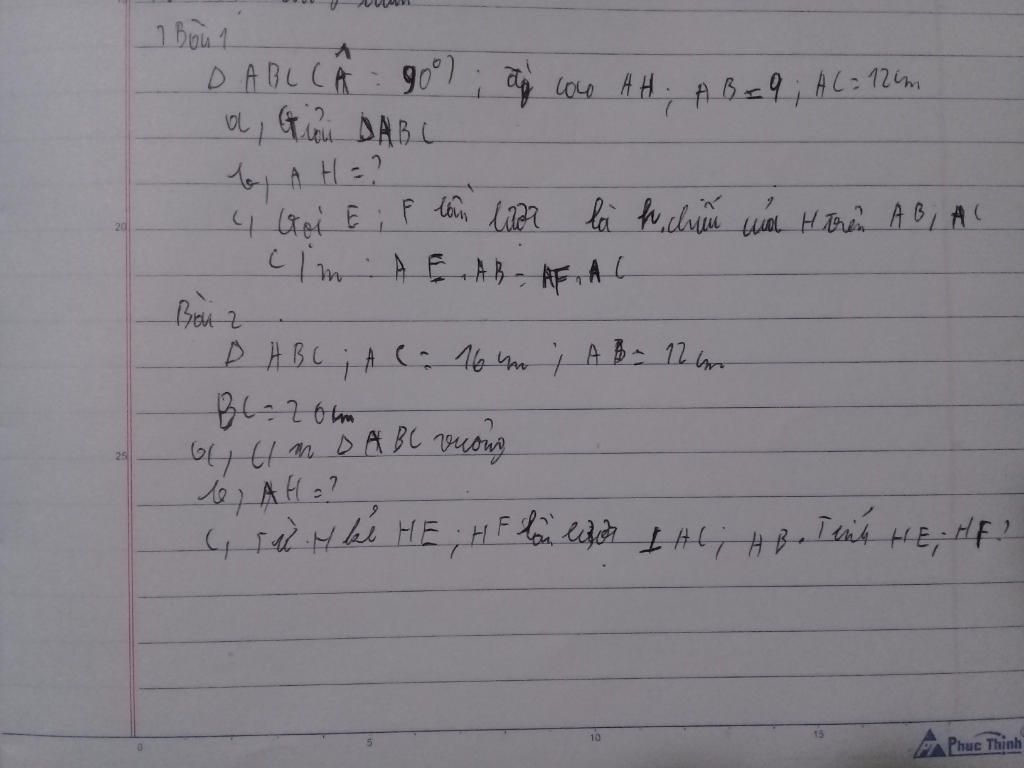 Bài 1
Δ ABC (Â = 90°) ; đg cao AH ; AB = 9 ; AC = 12cm
a, Giải ΔABC
b, AH = ?
c, Gọi E ; F lần lượt là h.chiếu của H trên AB ; AC
C/m : AE . AB = AF . AC
Bài 2
Δ ABC ; AC = 16cm ; AB = 12cm
BC = 20cm
a, C/m ΔABC vuông
b, AH = ?
c, Từ H kẻ HE ; HF lần lượt ⊥ AC ; AB . Tính HE ; HF ?
20
25
0 5 10 15
Phuc Thinh